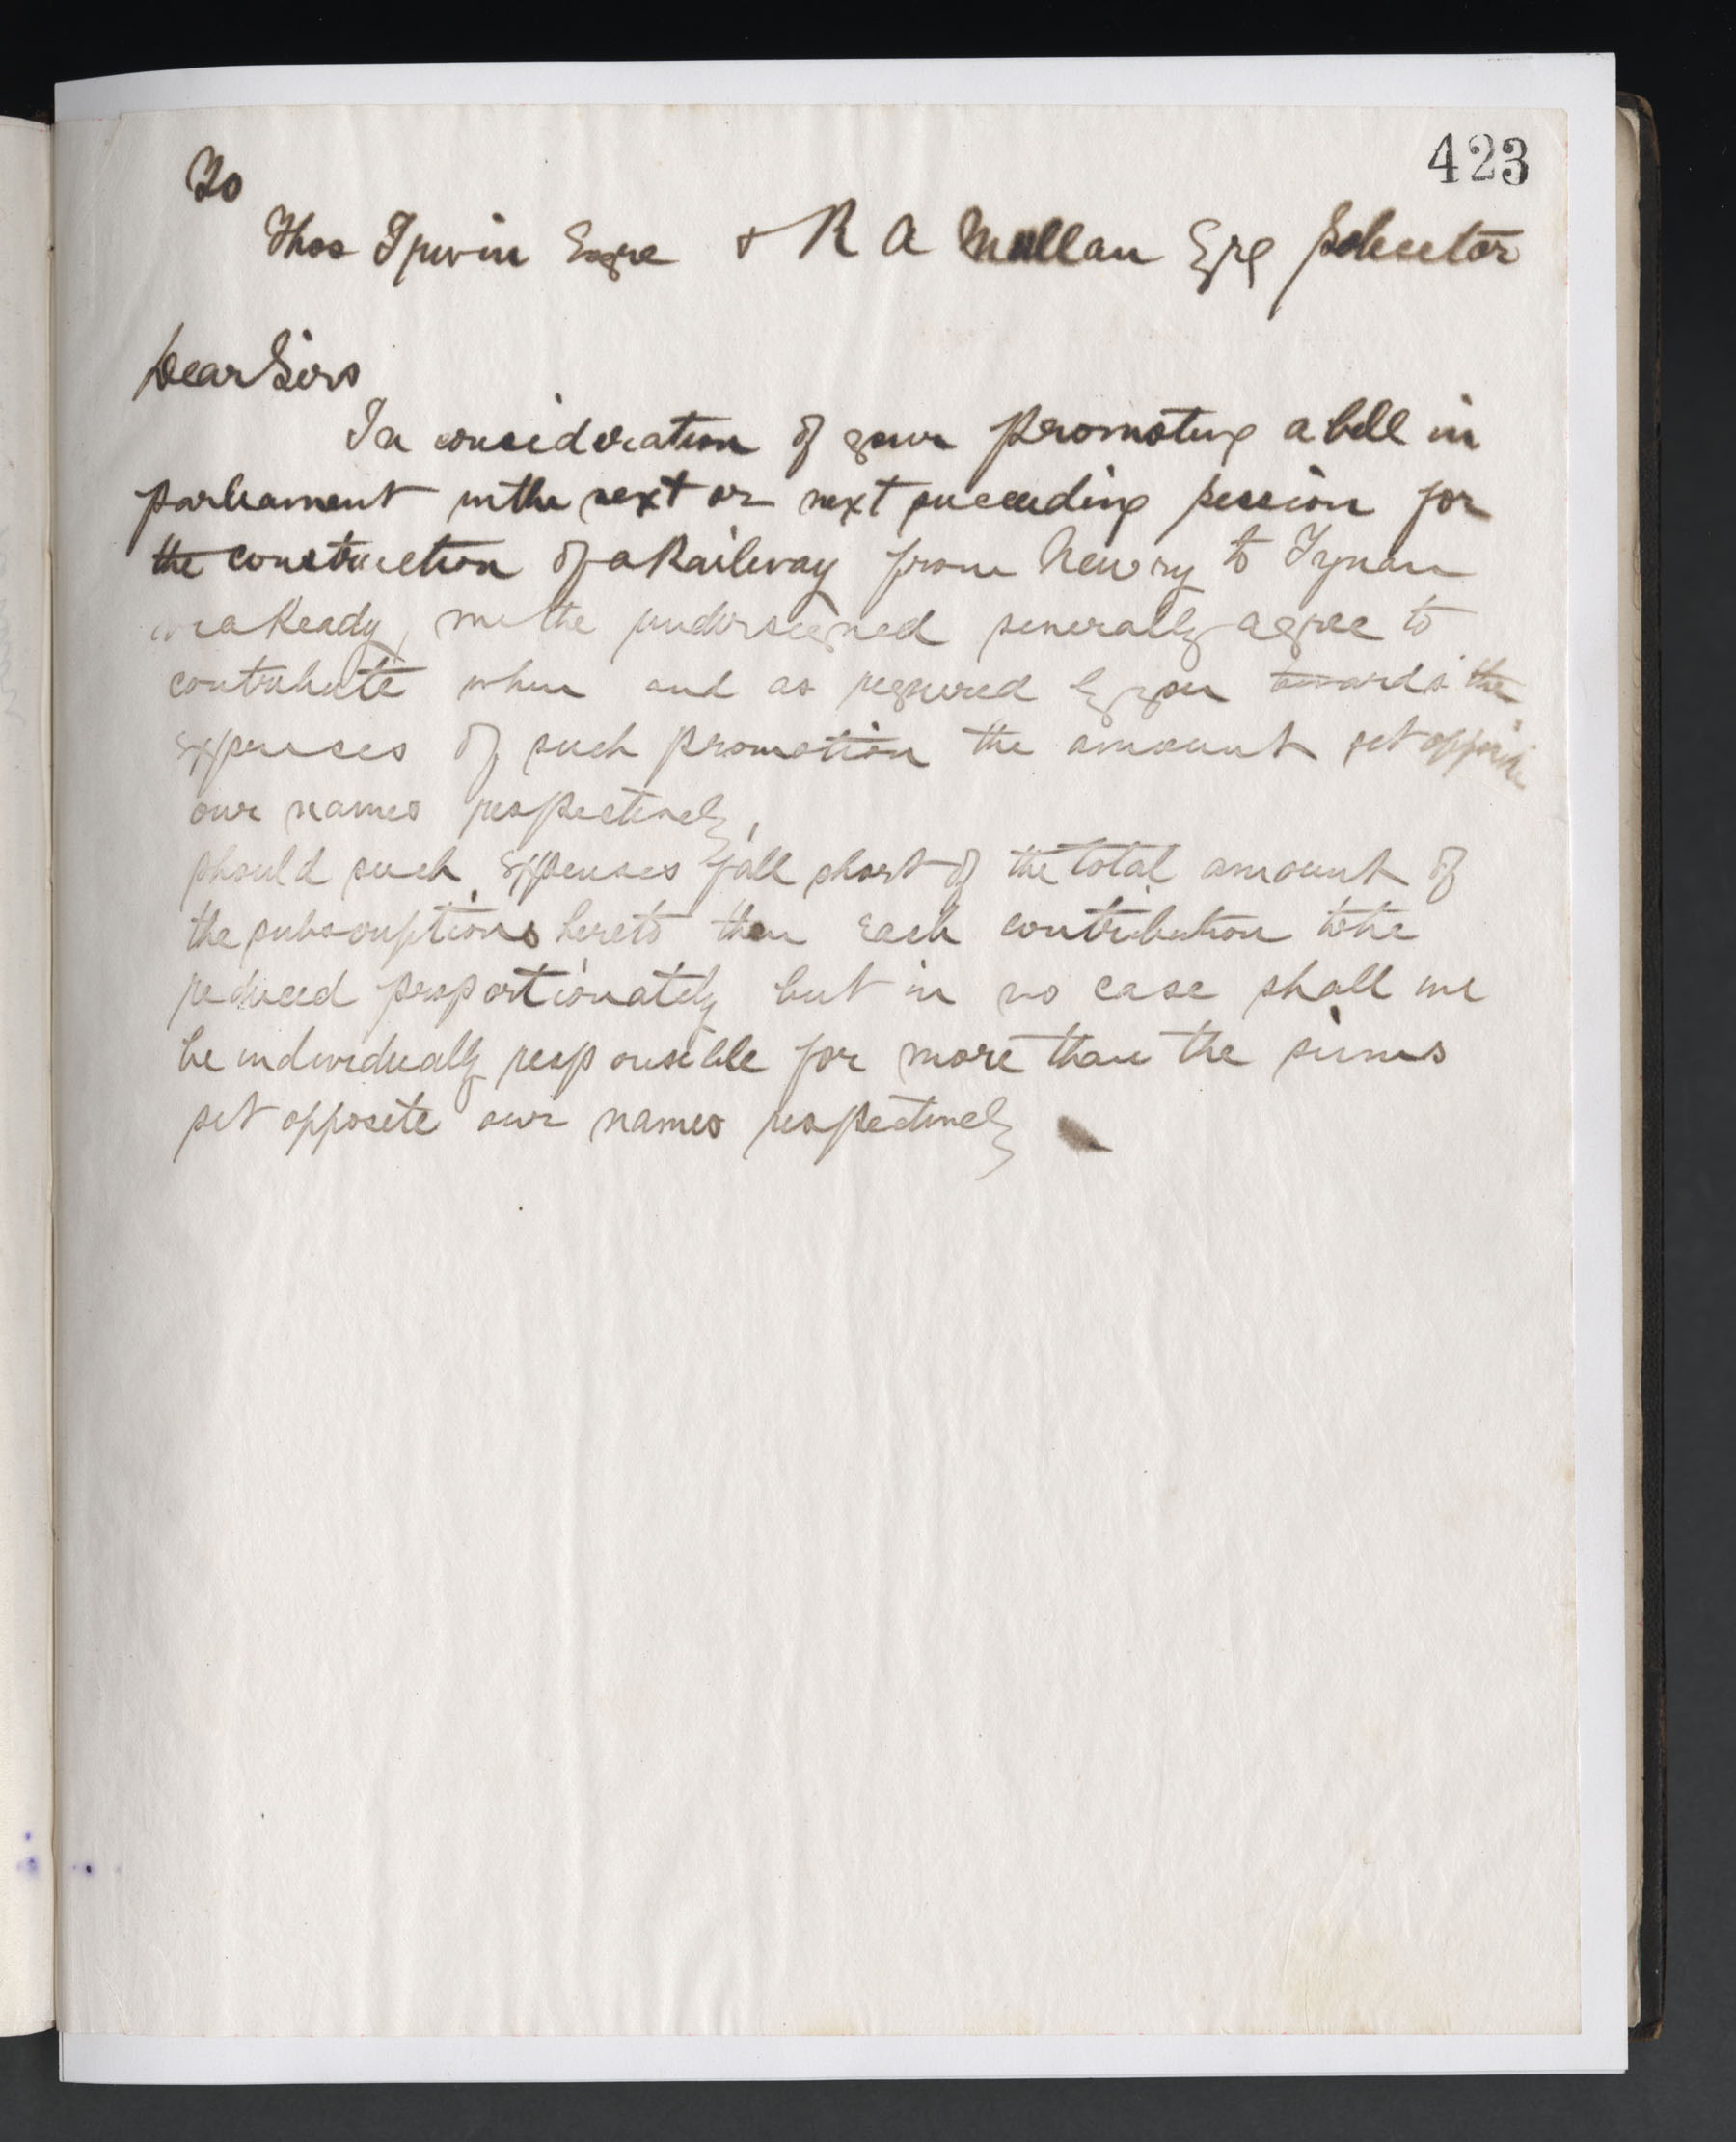 423
To
Thos Irwin Esqre & R A Mullan Esq Solicitor
Dear Sirs
In consideration of your promoting a bill in
parliament in the next or next succeeding session for
the construction of a Railway from Newry to Tynan
via Keady, we the undersigned severally agree to
contribute when and as required by you towards the
expenses of such promotion the amount set opposite
our names respectively,
should such expenses fall short of the total amount of
the subscriptions hereto then each contribution to be
reduced proportionately but in no case shall we
be individually responsible for more than the sums
set opposite our names respectively